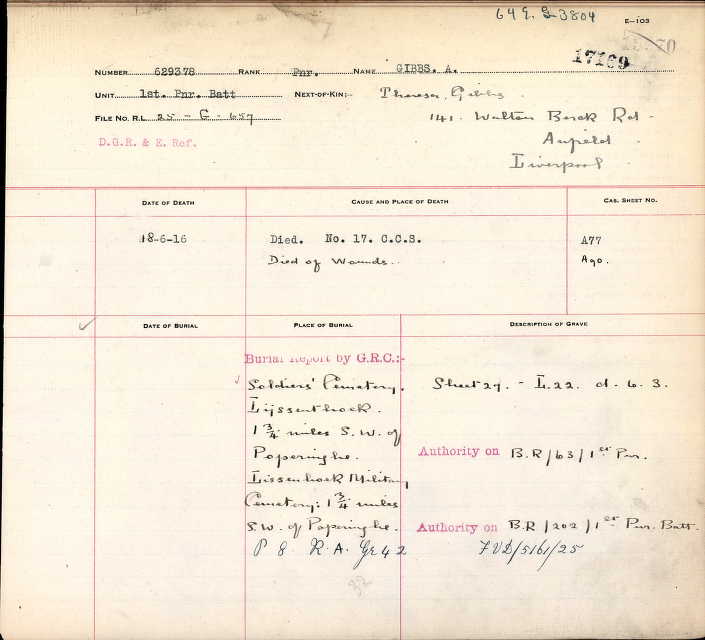 649. G-3804
E-103
17169
NUMBER 629378 RANK Pnr. NAME GIBBS. A.
UNIT 1st. Pnr. Batt NEXT-OF-KIN:- Theresa Gibbs
FILE NO. R.L. 25 - G - 657 141. Walton Breck Rd -
D.G.R. & E. Ref. Anfield
Liverpool
DATE OF DEATH CAUSE AND PLACE OF DEATH CAS. SHEET NO.
18-6-16 Died. No. 17. C.C.S. A77
Died of Wounds. A90.
DATE OF BURIAL PLACE OF BURIAL DESCRIPTION OF GRAVE
Burial Report by G.R.C.:-
Soldiers' Cemetery. Sheet 27. - L.22. d. 6. 3.
Lijssenthoek.
1 3/4 miles S.W. of
Poperinghe. Authority on B.R/63/1st Pnr.
Lissenhoek Military
Cemetery: 1 3/4 miles
S.W. of Poperinghe. Authority on B.R/202/1st Pnr. Batt.
P 8 R. A. Gr 42